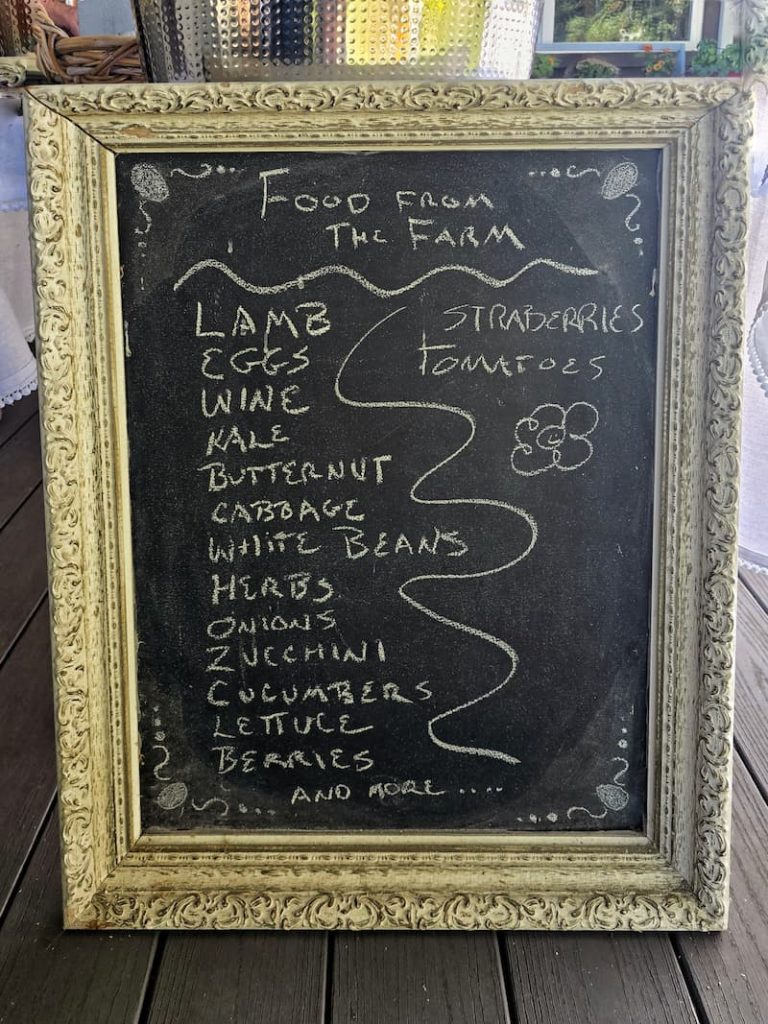 FOOD FROM
THE FARM
LAMB
EGGS
WINE
KALE
BUTTERNUT
CABBAGE
WHITE BEANS
HERBS
ONIONS
ZUCCHINI
CUCUMBERS
LETTUCE
BERRIES
AND MORE ....
STRABERRIES
TOMATOES